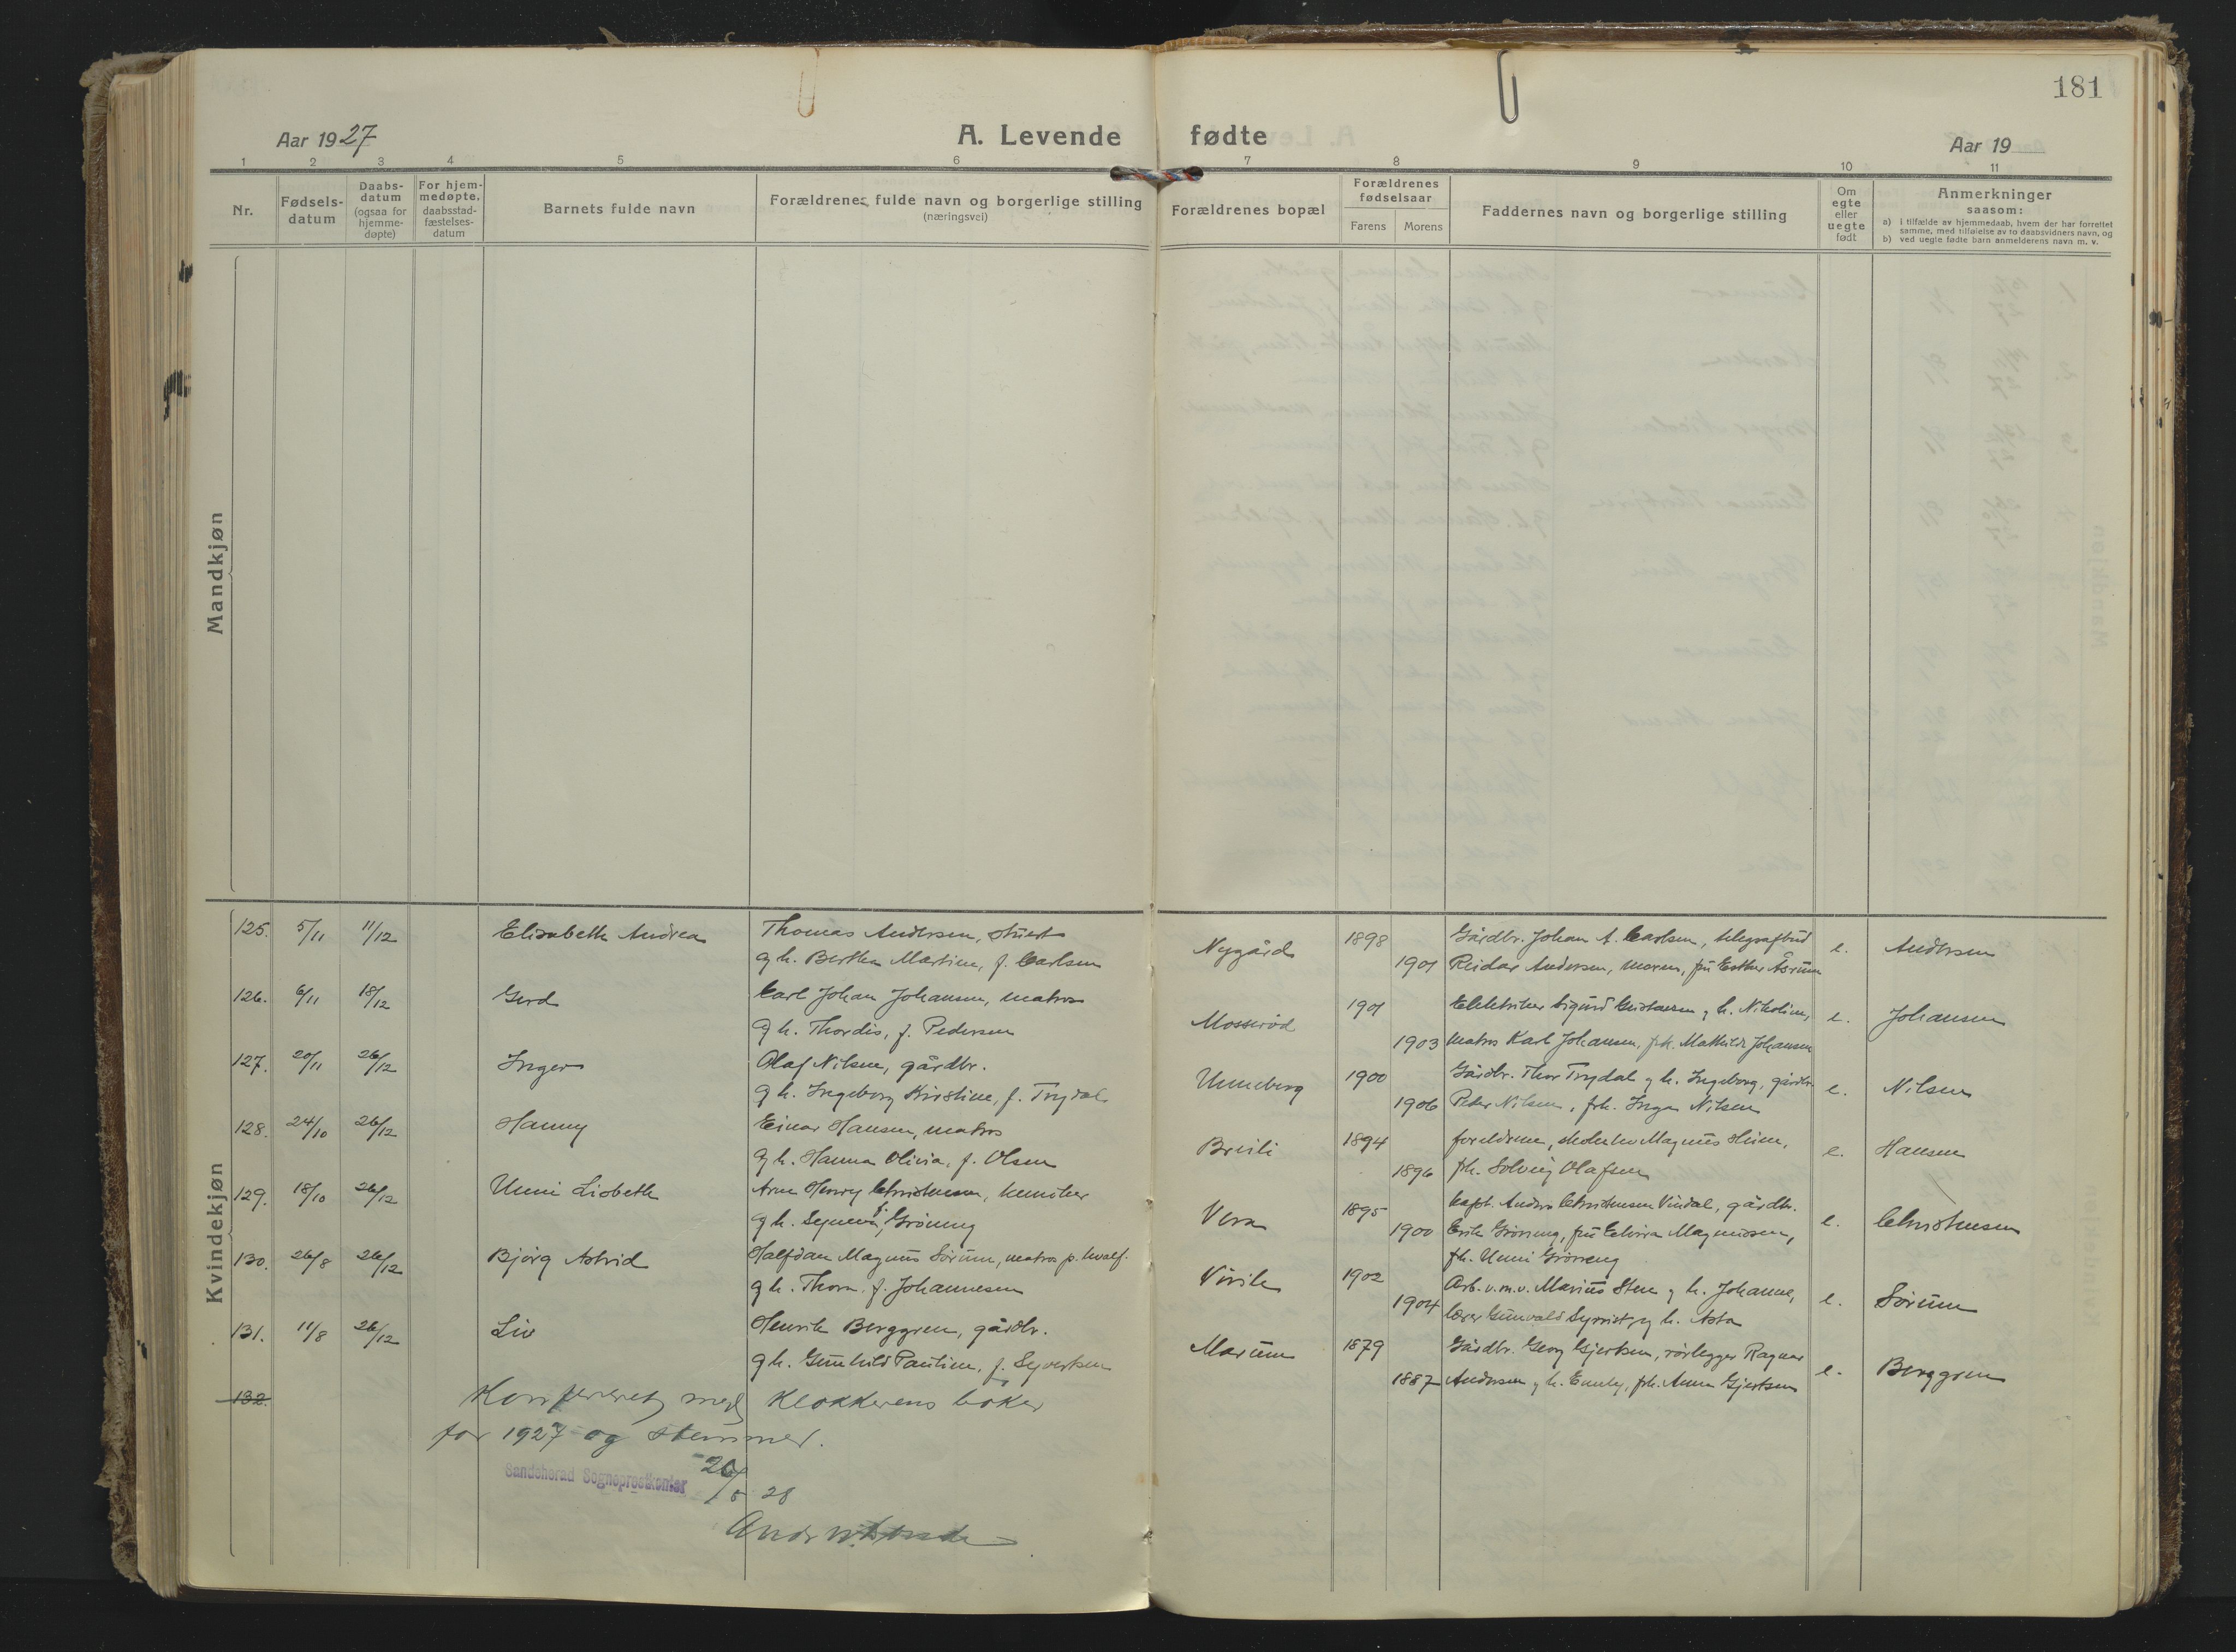 181
Aar 1927
A. Levende fødte
Aar 19
1 2 3 4 5 6 7 8 9 10 11
Nr.
Fødsels-
datum
Daabs-
datum
(ogsaa for
hjemme-
døpte)
For hjem-
medøpte,
daabsstad-
fæstelses-
datum
Barnets fulde navn
Forældrenes fulde navn og borgerlige stilling
(næringsvei)
Forældrenes bopæl
Forældrenes
fødselsaar
Farens Morens
Faddernes navn og borgerlige stilling
Om
egte
eller
uegte
født
Anmerkninger
saasom:
a) i tilfælde av hjemmedaab, hvem der har forrettet
samme, med tilføielse av to daabsvidners navn, og
b) ved uegte fødte barn anmelderens navn m. v.
Mandkjøn
Kvindekjøn
125. 5/11 11/12 Elisabeth Andrea Thomas Andersen, stuert Nygård 1898 Gårdbr. Johan A. Carlsen, telegrafbud e. Andersen
og h. Berthea Martine, f. Carlsen 1901 Reidar Andersen, moren, fru Esther Åsrum
126. 6/11 18/12 Gerd Carl Johan Johansen, matros Mosserød 1901 Elektriker Sigurd Gustavsen og h. Nikoline, e. Johansen
og h. Thordis, f. Pedersen 1903 matros Karl Johansen, frk. Mathilde Johansen
127. 20/11 26/12 Inger Olaf Nilsen, gårdbr. Unneberg 1900 Gårdbr. Thor Trydal og h. Ingeborg, gårdbr. e. Nilsen
og h. Ingeborg Kristine, f. Trydal 1906 Peter Nilsen, frk. Inga Nilsen
128. 24/10 26/12 Hanny Einar Hansen, matros Breili 1894 foreldrene, Magnus e. Hansen
og h. Hanna Olivia, f. Olsen 1896 frk. Solveig Olafsen
129. 18/10 26/12 Unni Lisbeth Arne Henry Christensen, kemiker Vera 1895 Kapt. Anders Christensen Vindal, gårdbr. e. Christensen
og h. f. Grönneng 1900 Erik Grönneng, fru Elvira Magnussen,
frk. Unni Grönneng
130. 26/8 26/12 Bjørg Astrid Halfdan Magnus Sørum, matros p. hvalf. Virik 1902 Arb. v. m. v. Marius Sten og h. Johanne, e. Sørum
og h. Thora f. Johannesen 1904 lærer Gunvald Syrrist og h. Asta
131. 11/8 26/12 Liv Henrik Berggren, gårdbr. Marum 1879 Gårdbr. Georg Gjertsen, rørlegger Ragnar e. Berggren
og h. Gunhild Pauline, f. Syvertsen 1887 Andersen og h. Emily, frk. Anna Gjertsen
132.
Konferert med klokkerens bøker
for 1927 og stemmer.
Sandeherad Sogneprestkontor 28